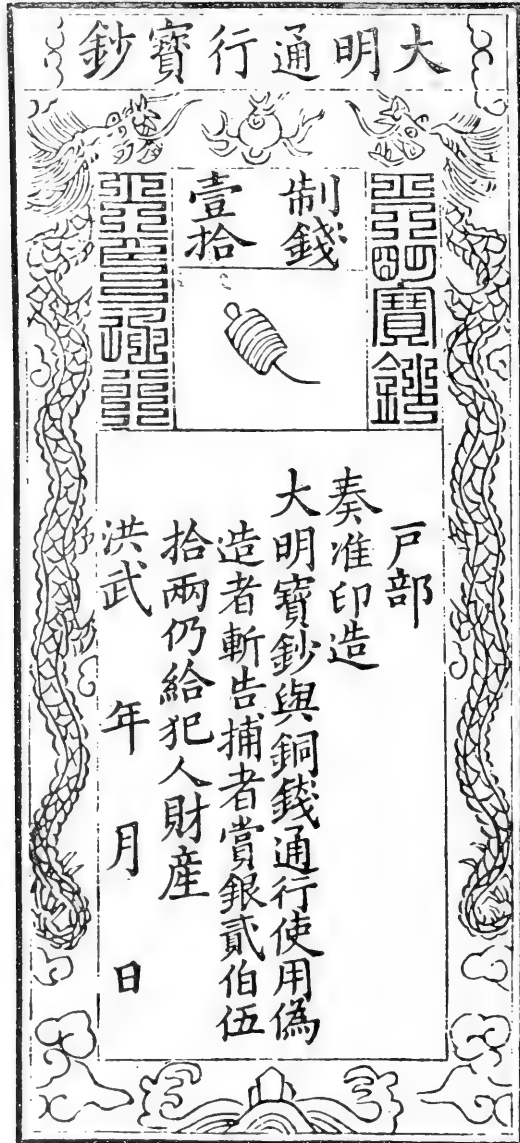 大明通行寶鈔
大明寶鈔
制錢
壹拾
天下通行
戶部
奏准印造
大明寶鈔與銅錢通行使用偽
造者斬告捕者賞銀貳伯伍
拾兩仍給犯人財產
洪武 年 月 日